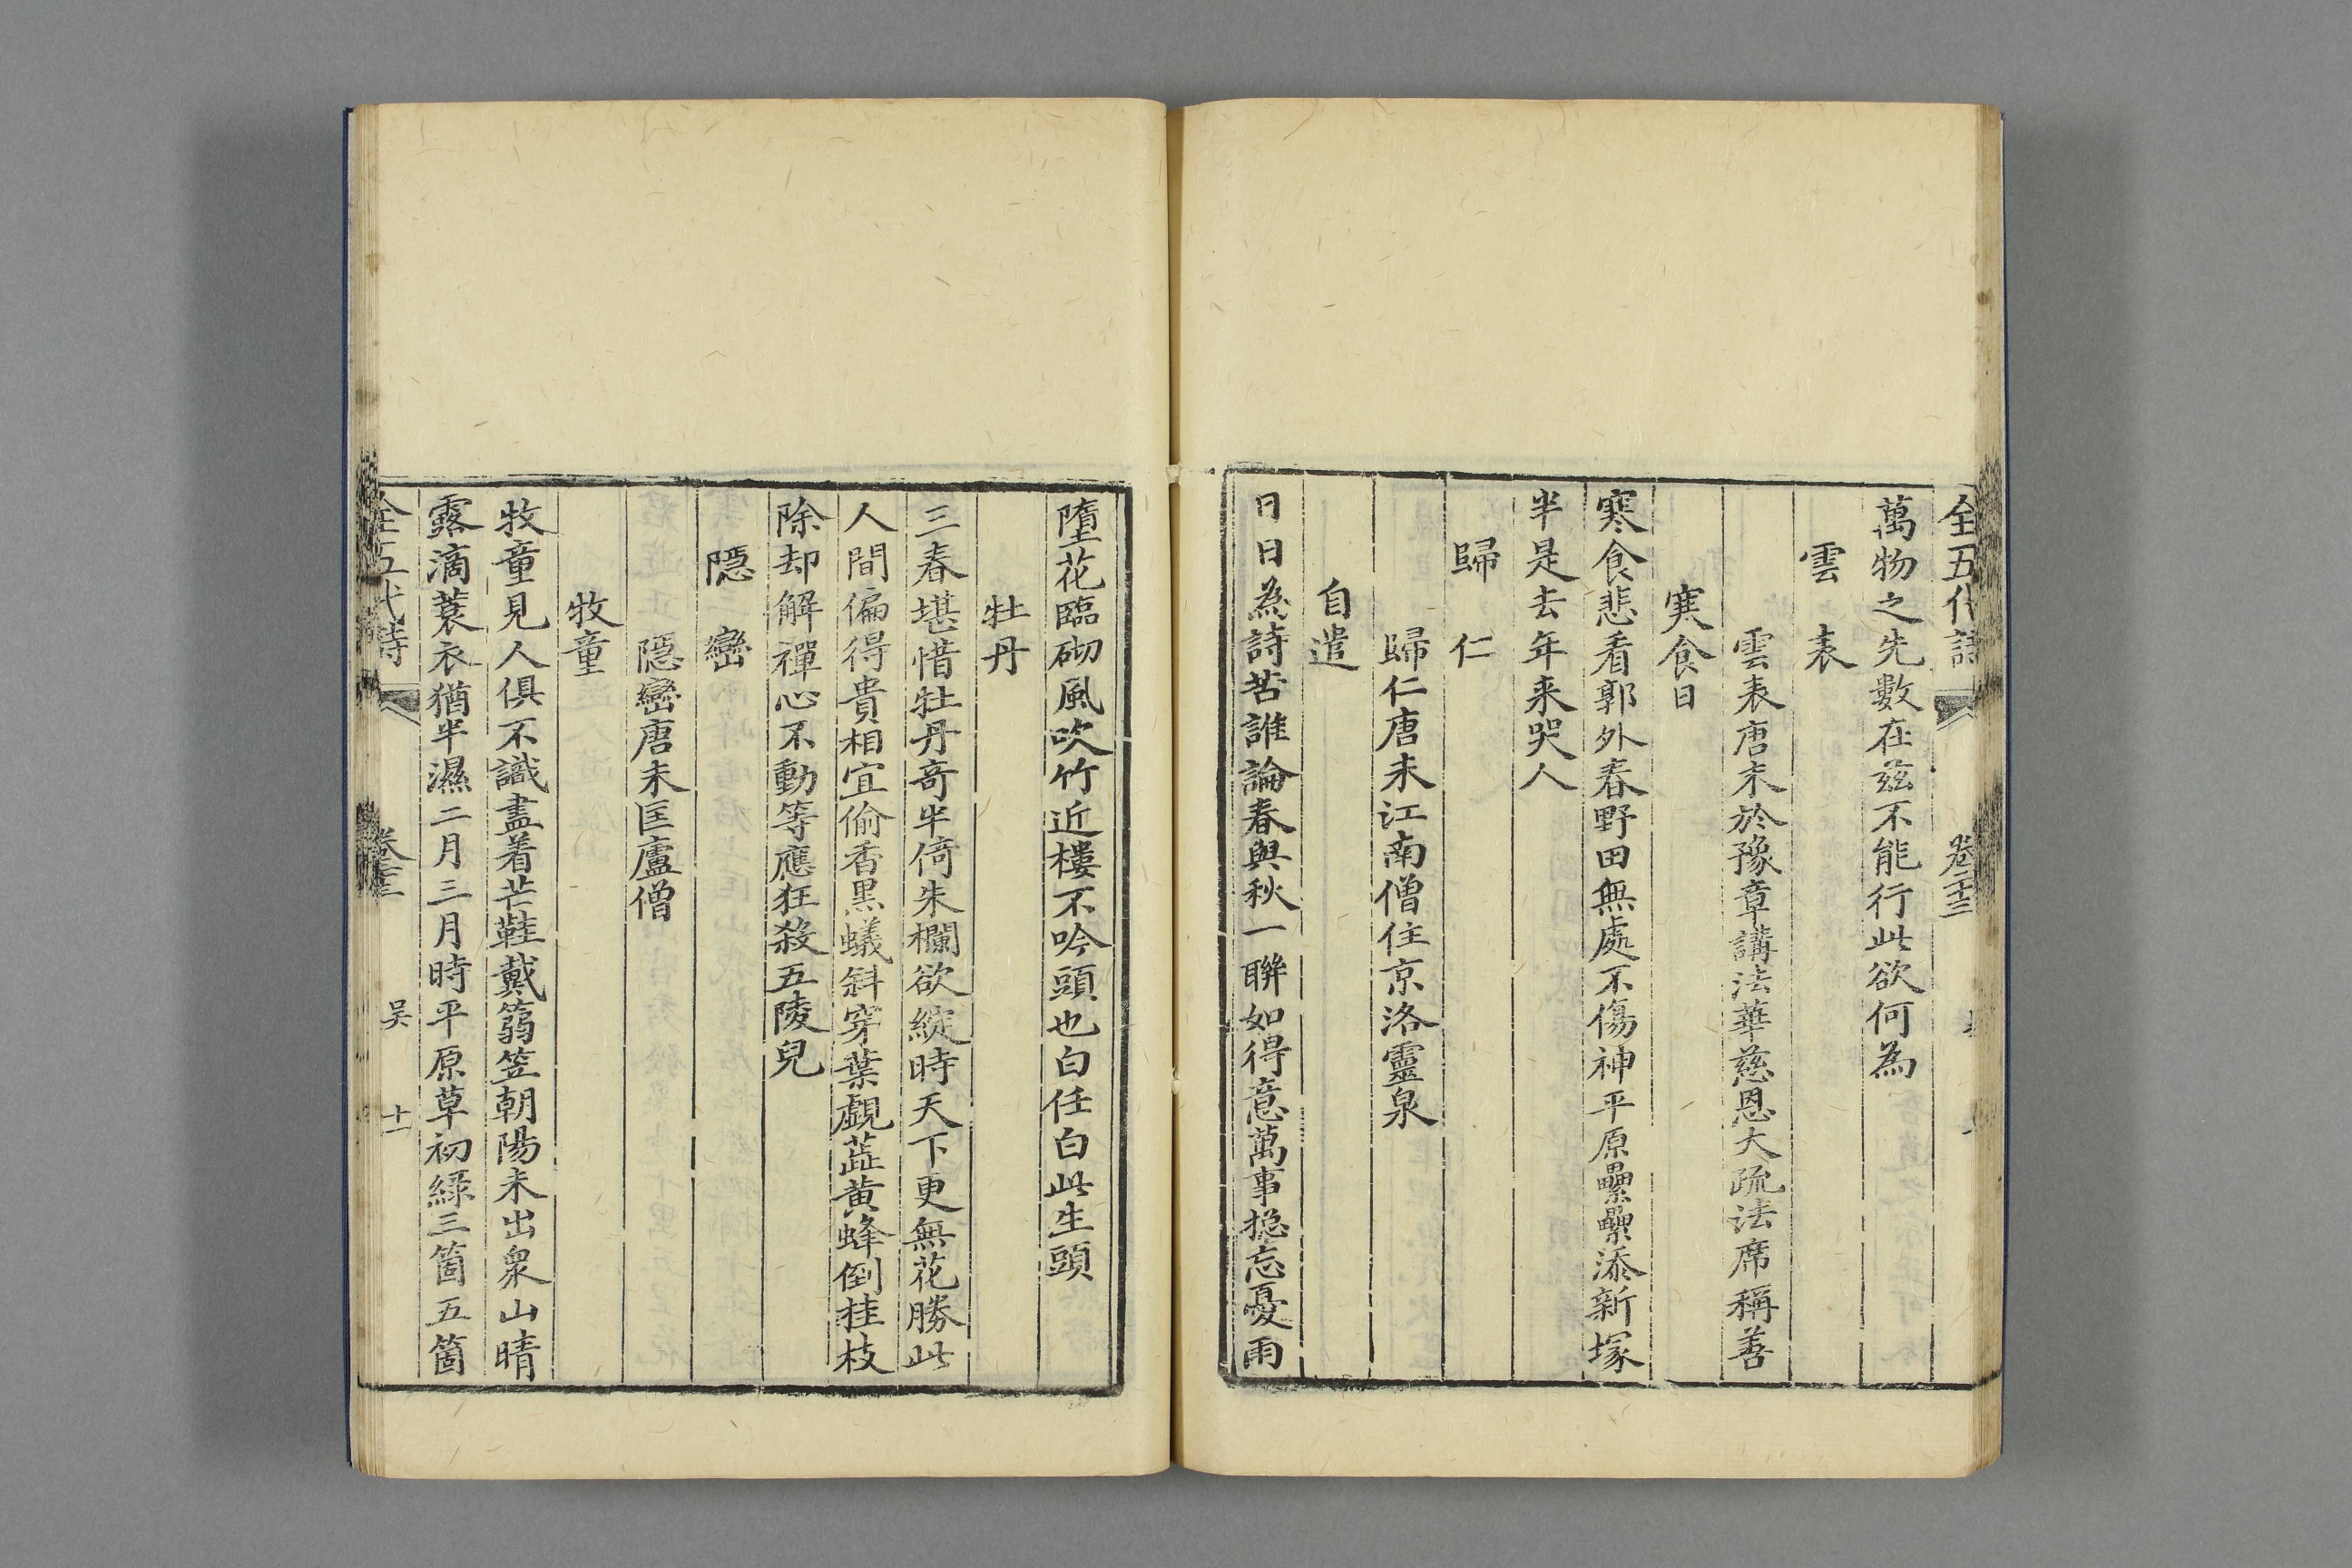 全五代詩 卷二十三
萬物之先數在茲不能行此欲何為
雲表
雲表唐末於豫章講法華慈恩大疏法席稱善
寒食日
寒食悲看郭外春野田無處不傷神平原纍纍添新塚
半是去年来哭人
歸仁
歸仁唐末江南僧住京洛靈泉
自遣
日日為詩苦誰論春與秋一聯如得意萬事揔忘憂雨
墮花臨砌風吹竹近樓不吟頭也白任白此生頭
牡丹
三春堪惜牡丹奇半倚朱欄欲綻時天下更無花勝此
人間偏得貴相宜偷香黒蟻斜穿葉覷蕋黃蜂倒挂枝
除却解禪心不動等應狂殺五陵兒
隱巒
隱巒唐末匡廬僧
牧童
牧童見人俱不識盡着芒鞋戴篛笠朝陽未出衆山晴
露滴蓑衣猶半濕二月三月時平原草初緑三箇五箇
全五代詩 吴 十一